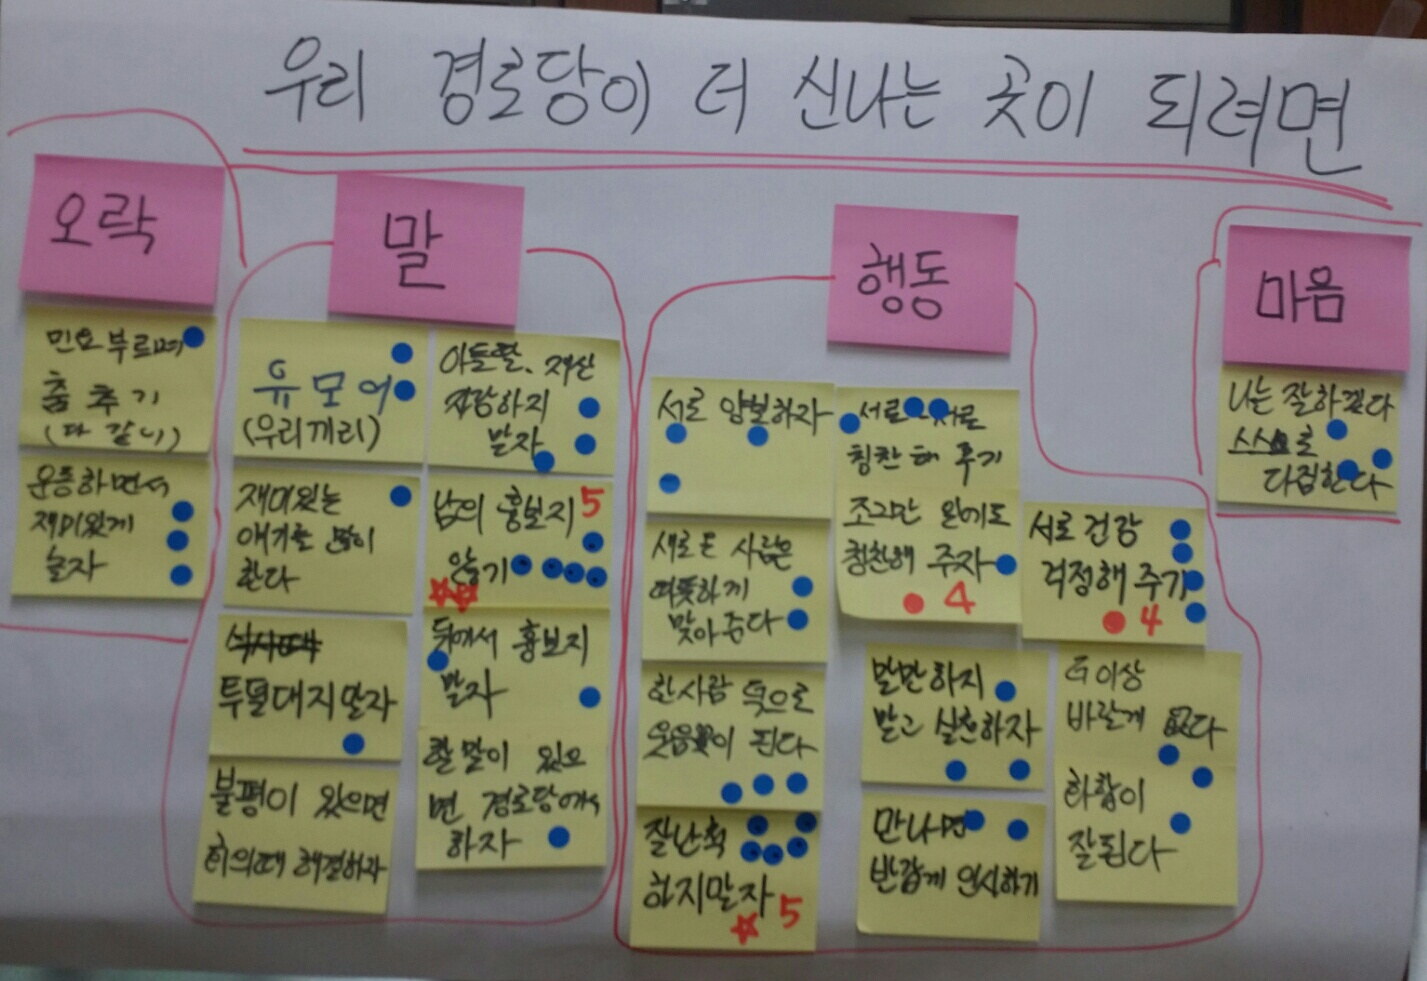 우리 경로당이 더 신나는 곳이 되려면
오락
민요 부르며
춤 추기
(다 같이)
운동하면서
재미있게
놀자
말
유모어
(우리끼리)
재미있는
얘기를 많이
한다
투덜대지말자
불평이 있으면
회의때 해결하자
아들딸, 재산
자랑하지
말자
남의 흉보지 5
않기
뒤에서 흉보지
말자
할 말이 있으
면 경로당에서
하자
행동
서로 양보하자
새로 온 사람은
따뜻하게
맞아준다
한사람 덕으로
웃음꽃이 된다
잘난척
하지말자
5
서로 서로
칭찬해 주기
조그만 일에도
칭찬해 주자
4
서로 건강
걱정해 주기
4
말만하지
말고 실천하자
만나면
반갑게 인사하기
더이상
바랄게 없다
화합이
잘된다
마음
나는 잘하겠다
스스로
다짐한다